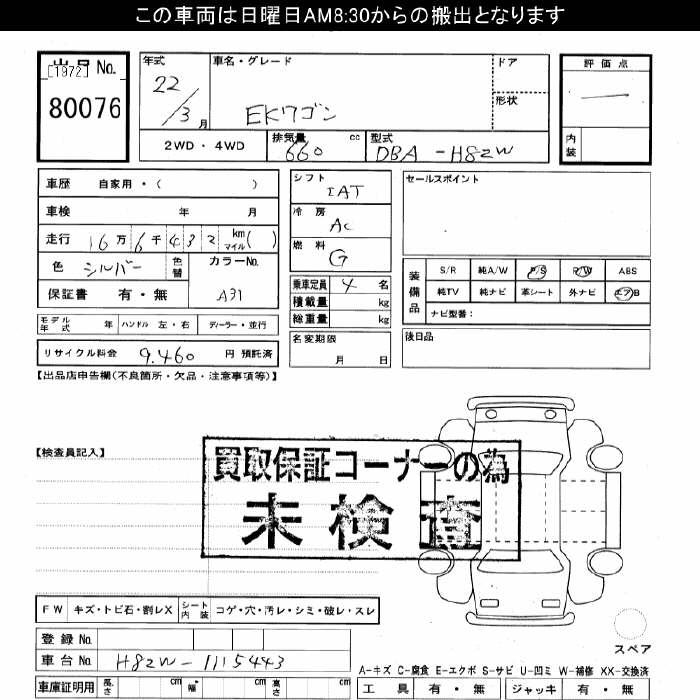 この車両は日曜日AM8:30からの搬出となります
出品 No.
[1972]
80076
年式
22/3月
車名・グレード
EKワゴン
ドア
形状
評価点
—
内装
2WD・4WD
排気量
660 cc
型式
DBA-H82W
車歴 自家用・( )
車検 年 月
走行 16万6千432 km マイル( )
色 シルバー
色替
カラーNo.
A31
保証書 有・無
モデル年式 年 ハンドル 左・右 ディーラー・並行
リサイクル料金 9.460 円 預託済
シフト
IAT
冷房
AC
燃料
G
乗車定員 4 名
積載量 kg
総重量 kg
名変期限
月 日
セールスポイント
装備品
S/R 純A/W P/S P/W ABS
純TV 純ナビ 革シート 外ナビ エアB
ナビ型番：
後日品
【出品店申告欄(不良箇所・欠品・注意事項等)】
【検査員記入】
買取保証コーナーの為
未検査
FW キズ・トビ石・割レX シート内装 コゲ・穴・汚レ・シミ・破レ・スレ
登録No.
車台No. H82W-1115443
車庫証明用 長さ cm 幅 cm 高さ cm
スペア
A-キズ C-腐食 E-エクボ S-サビ U-凹ミ W-補修 XX-交換済
工具 有・無 ジャッキ 有・無